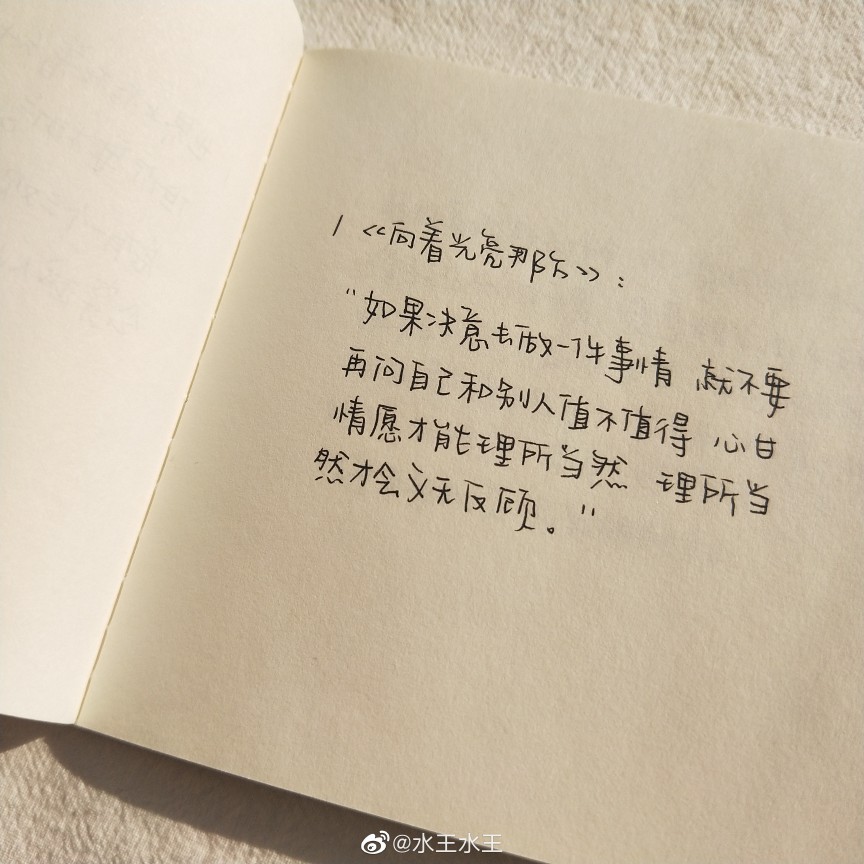 /《向着光亮那方》:
“如果决意去做一件事情 就不要
再问自己和别人值不值得 心甘
情愿才能理所当然 理所当
然才会义无反顾。”
@水王水王